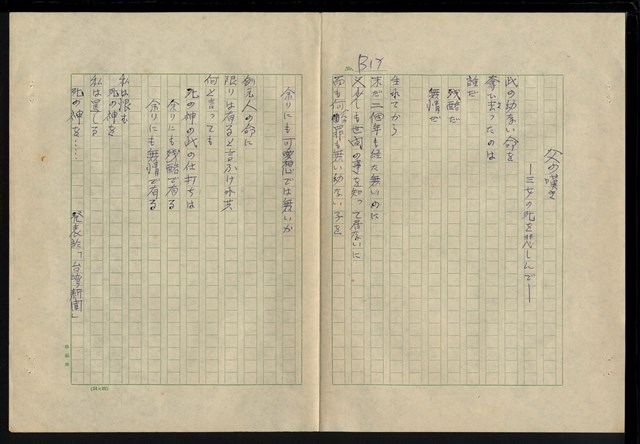 No. B17
父の嘆き
―三女の死を悲しんで―
此の幼ない命を
奪い去ったのは
誰だ
残酷だ
無情だ
生れてから
未だ二個年も経た無いのに
しも世間の事を知って居ないに
而も何の罪も無い幼ない子を
余りにも可愛想では無いか
人の命に
限りは有ると言ふけれ共
何と言っても
死の神の此の仕打ちは
余りにも残酷で有る
余りにも無情で有る
私は恨む
死の神を
私は罵しる
死の神を……
発表於「台湾新聞」